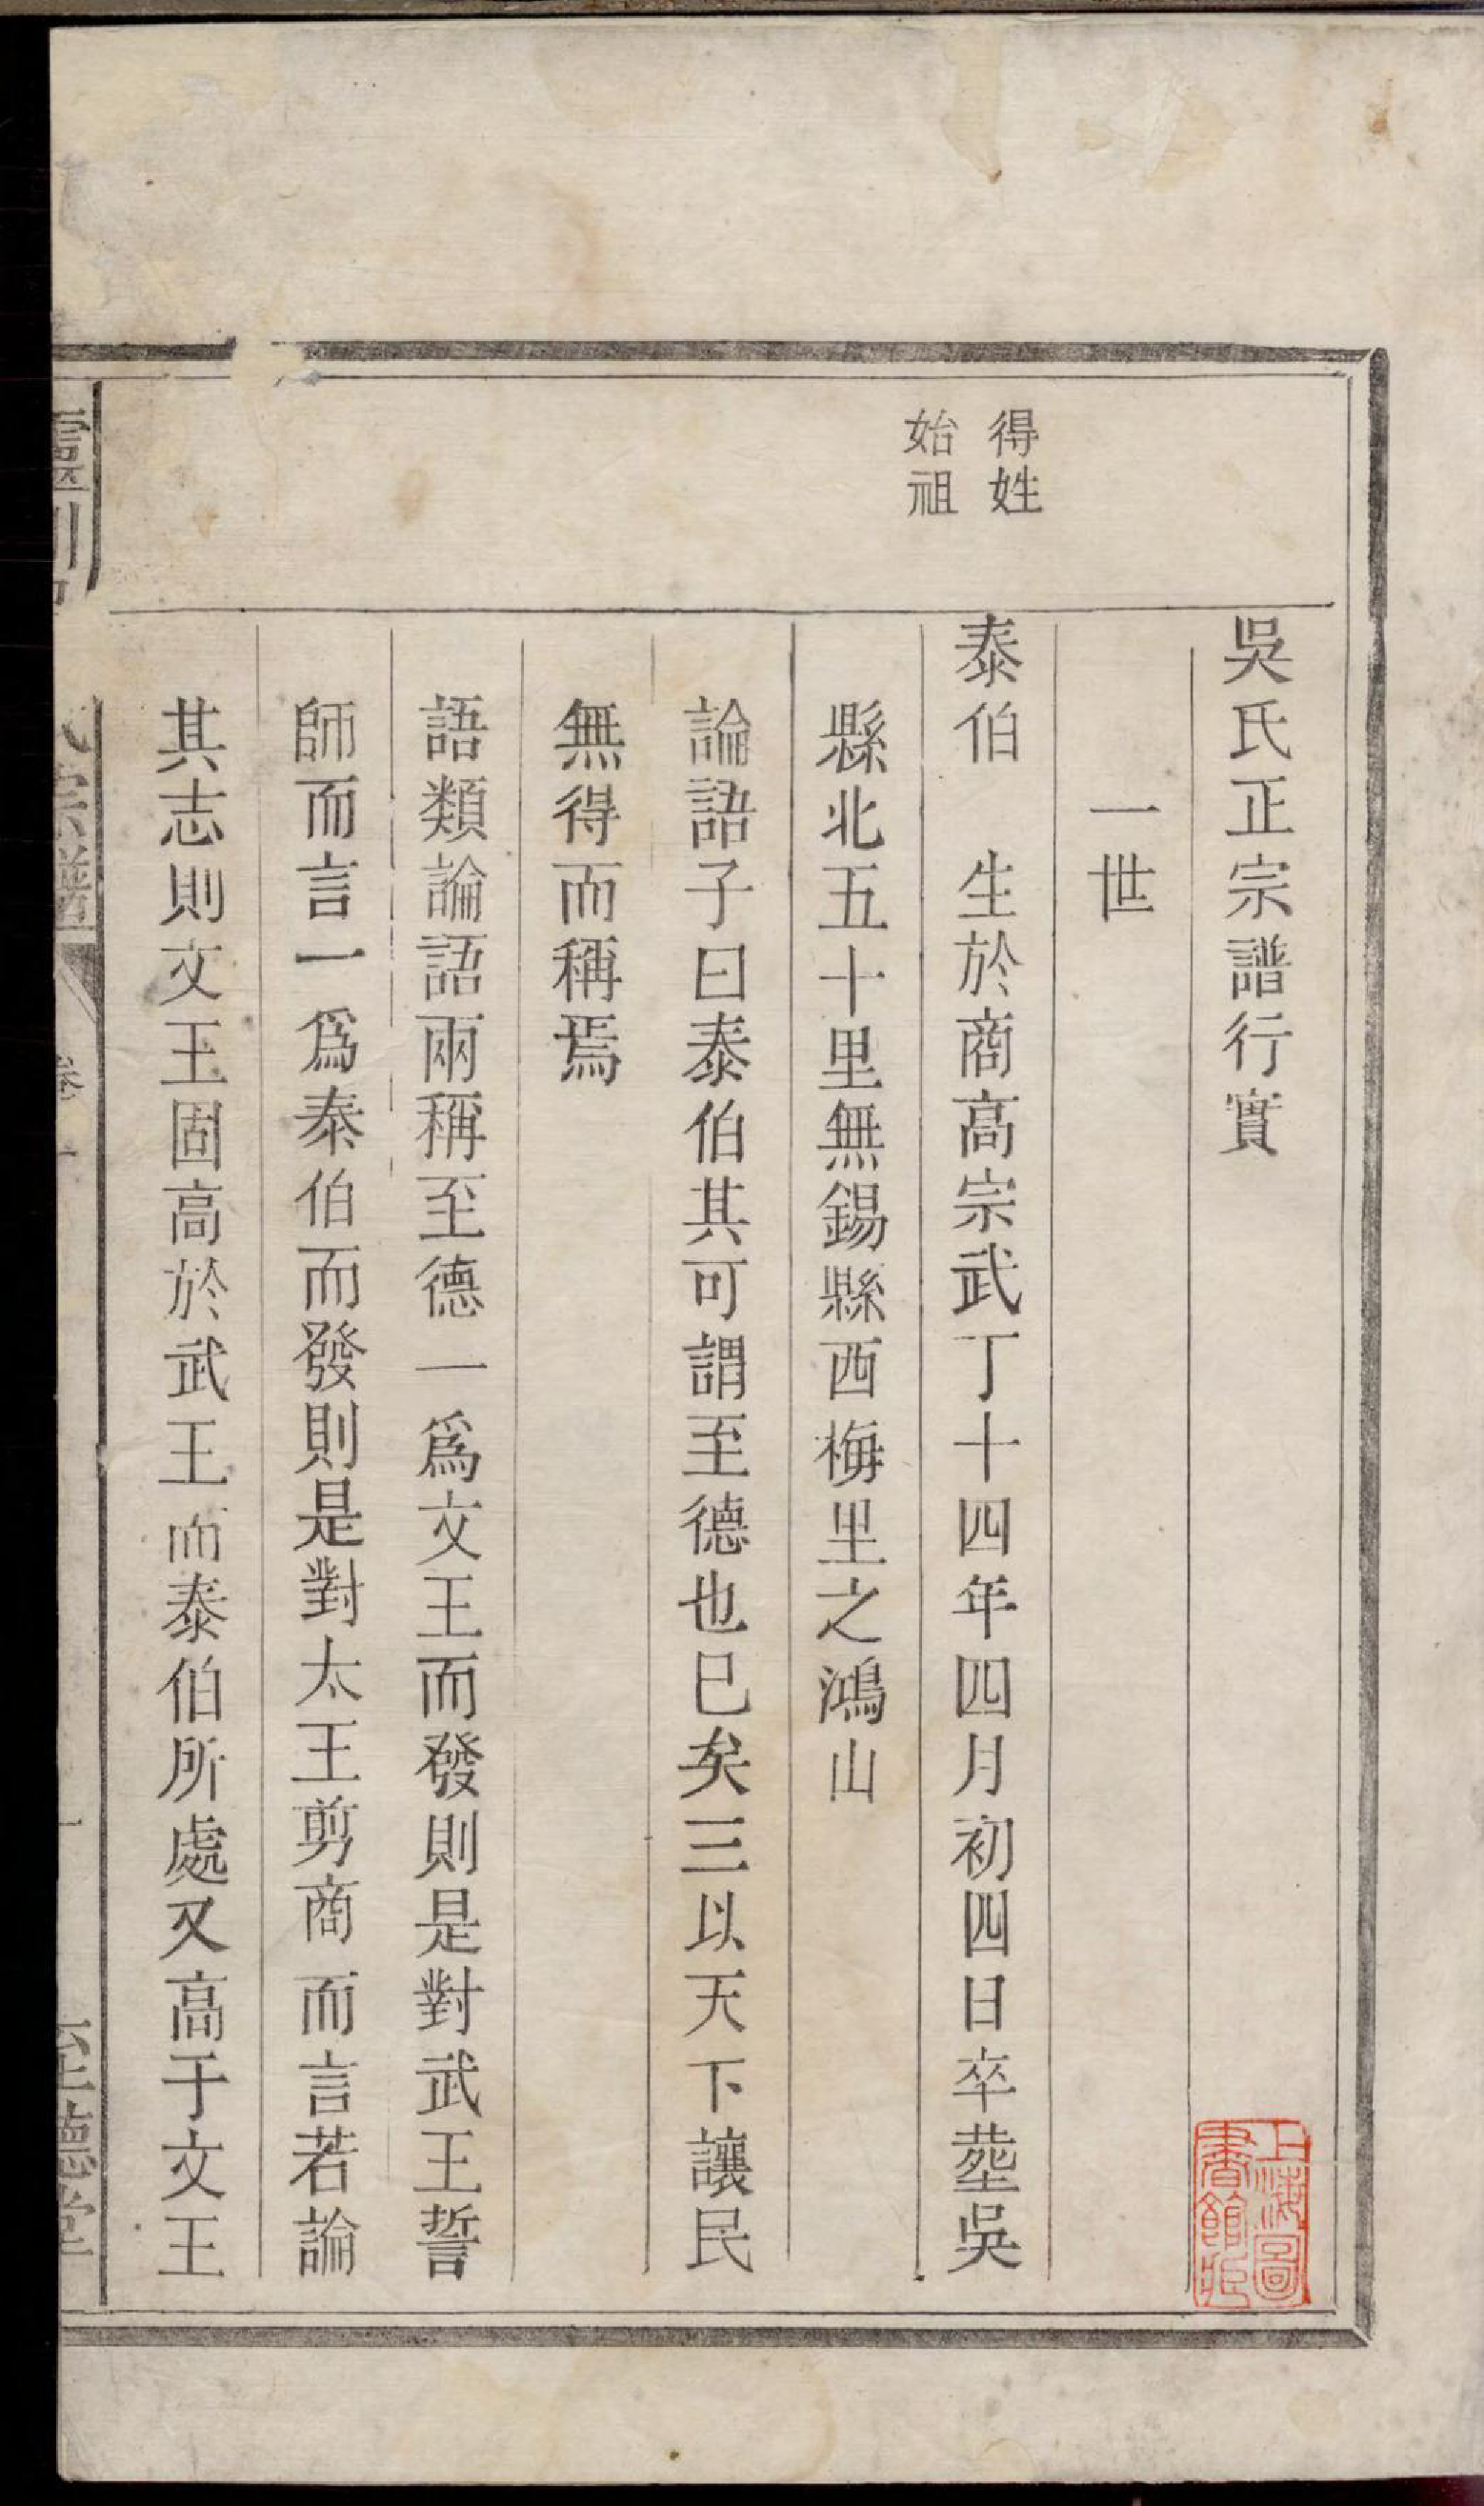 吳氏正宗譜行實
一世
得姓
始祖
泰伯　生於商高宗武丁十四年四月初四日卒塟吳
縣北五十里無錫縣西梅里之鴻山
論語子曰泰伯其可謂至德也已矣三以天下讓民
無得而稱焉
語類論語兩稱至德一爲文王而發則是對武王誓
師而言一爲泰伯而發則是對太王剪商而言若論
其志則文王固高於武王而泰伯所處又高于文王
宗譜
卷一
一
至德堂
上海圖
書館藏